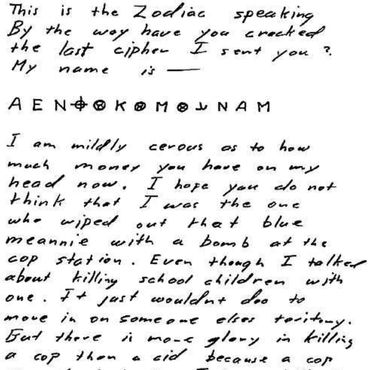 This is the Zodiac speaking
By the way have you cracked
the last cipher I sent you ?
My name is —
A E N ⌖ ⊛ K ⊛ M ⊛ ⅄ N A M
I am mildly cerous as to how
much money you have on my
head now. I hope you do not
think that I was the one
who wiped out that blue
meannie with a bomb at the
cop station. Even though I talked
about killing school children with
one. It just wouldnt doo to
move in on someone elses teritory.
But there is more glory in killing
a cop than a cid because a cop